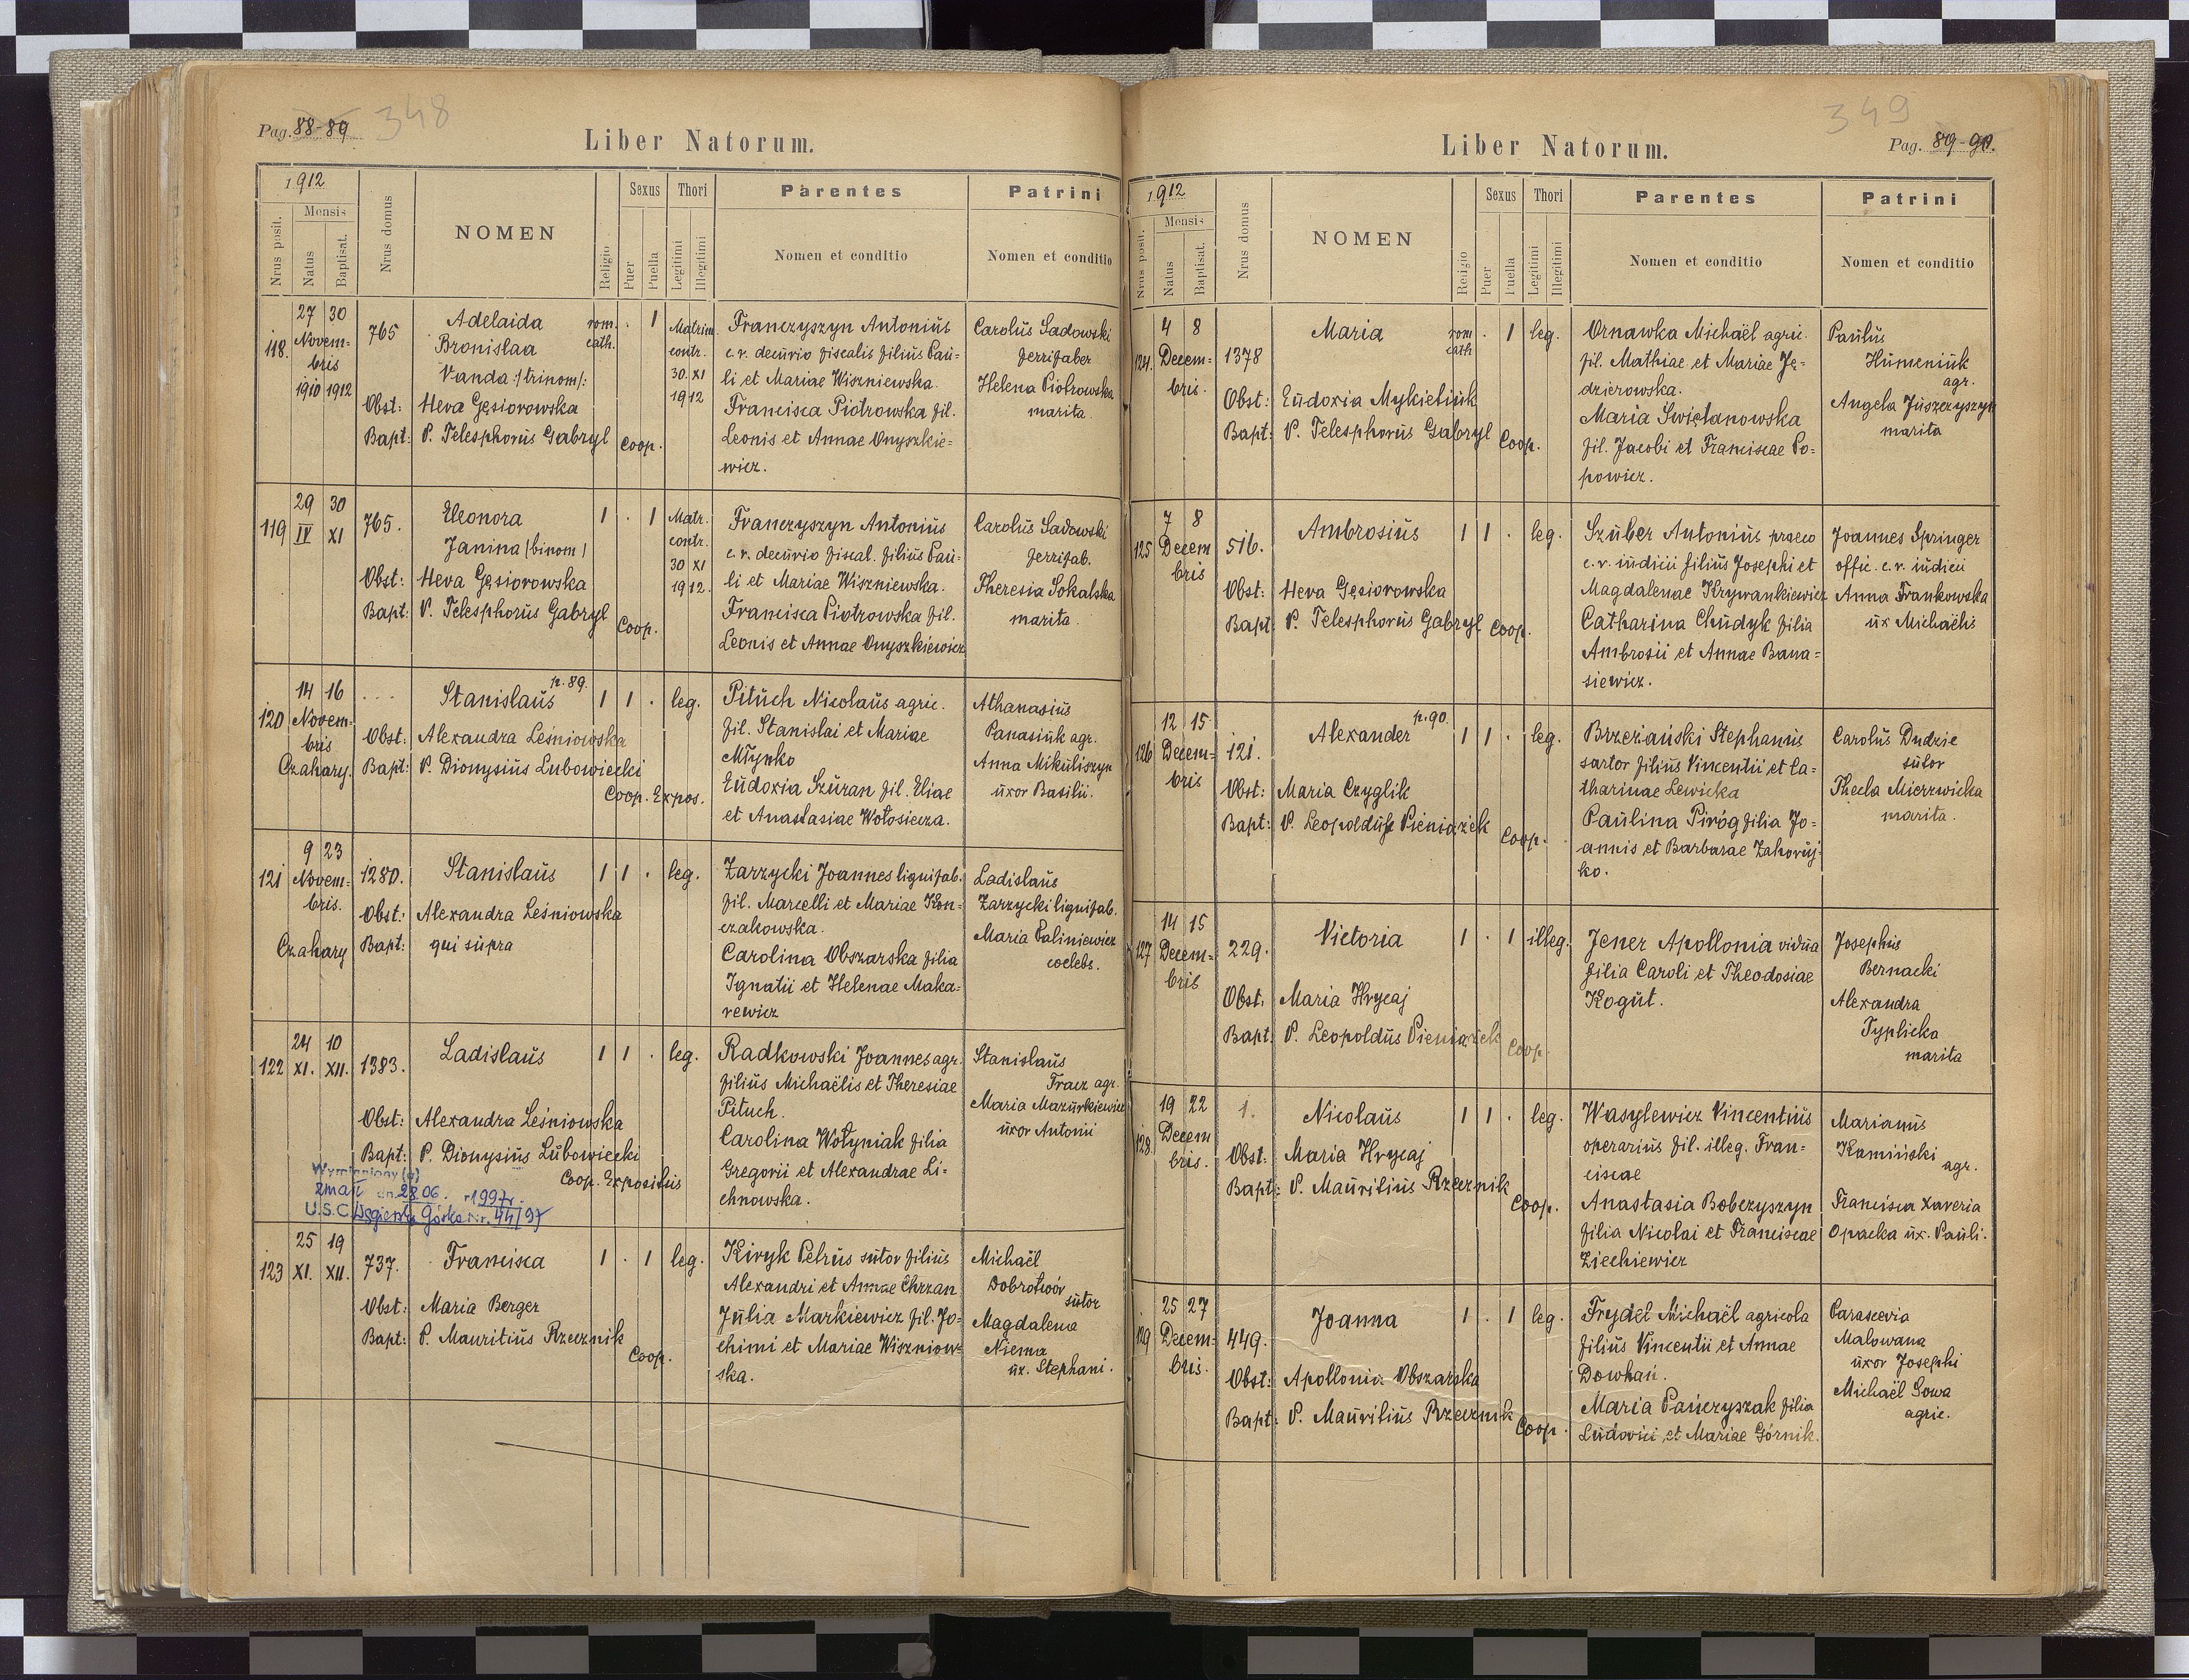 Pag. 88-89 348
Liber Natorum.
1912
Mensis
Nrus posit.
Natus
Baptisat.
Nrus domus
NOMEN
Religio
Sexus
Puer
Puella
Thori
Legitimi
Illegitimi
Parentes
Nomen et conditio
Patrini
Nomen et conditio
118.
27 30
Novem-
bris
1910 1912
765
Adelaida
Bronislaa
Vanda :/trinom/:
Obst: Heva Gęsiorowska
Bapt: P. Telesphorus Gabryl Coop.
rom.
cath.
. 1
Matrim.
contr.
30. XI
1912
Franczyszyn Antonius
c.r. decurio fiscalis filius Pau-
li et Mariae Wiszniewska.
Francisca Piotrowska fil.
Leonis et Annae Onyszkie-
wicz.
Carolus Sadowski
ferrifaber
Helena Piotrowska
marita.
119
29 30
IV XI
765.
Eleonora
Janina /binom/
Obst: Heva Gęsiorowska
Bapt: P. Telesphorus Gabryl Coop.
1 . 1
Matr.
contr.
30 XI
1912.
Franczyszyn Antonius
c.r. decurio fiscal. filius Pau-
li et Mariae Wiszniewska.
Francisca Piotrowska fil.
Leonis et Annae Onyszkiewicz
Carolus Sadowski
ferrifab.
Theresia Sokalska
marita.
120
14 16
Novem-
bris
Czahary.
...
Stanislaus p. 89.
Obst: Alexandra Leśniowska
Bapt: P. Dionysius Lubowiecki
Coop. Expos.
1 1 . leg.
Pituch Nicolaus agric.
fil. Stanislai et Mariae
Młynko
Eudoxia Szuran fil. Eliae
et Anastasiae Wołosiecza.
Athanasius
Panasiuk agr.
Anna Mikuliszyn
uxor Basilii.
121
9 23
Novem-
bris.
Czahary
1280.
Stanislaus
Obst: Alexandra Leśniowska
Bapt: qui supra
1 1 . leg.
Zarzycki Joannes lignifab.
fil. Marcelli et Mariae Kon-
czakowska.
Carolina Obszarska filia
Ignatii et Helenae Maka-
rewicz
Ladislaus
Zarzycki lignifab.
Maria Paliniewicz
coelebs.
122
24 10
XI. XII.
1383.
Ladislaus
Obst: Alexandra Leśniowska
Bapt: P. Dionysius Lubowiecki
Coop. Expositus
1 1 . leg.
Radkowski Joannes agr.
filius Michaëlis et Theresiae
Pituch.
Carolina Wołyniak filia
Gregorii et Alexandrae Li-
chnowska.
Stanislaus
Tracz agr.
Maria Mazurkiewicz
uxor Antonii
Wymieniony (a)
zmarł dn. 28.06. 1997r.
U.S.C. Węgierska Górka Nr. 44/97
123
25 19
XI. XII.
737.
Francisca
Obst: Maria Berger
Bapt: P. Mauritius Rzecznik
Coop.
1 . 1 leg.
Kiryk Petrus sutor filius
Alexandri et Annae Chrzan
Julia Markiewicz fil. Jo-
chimi et Mariae Wiszniow-
ska.
Michaël
Dobrotwór
sutor
Magdalena
Niema
ux. Stephani.
349
Pag. 89-90.
Liber Natorum.
1912
Mensis
Nrus posit.
Natus
Baptisat.
Nrus domus
NOMEN
Religio
Sexus
Puer
Puella
Thori
Legitimi
Illegitimi
Parentes
Nomen et conditio
Patrini
Nomen et conditio
124.
4 8
Decem-
bris.
1378
Maria
Obst: Eudoxia Mykietiuk
Bapt: P. Telesphorus Gabryl Coop.
rom
cath
. 1 leg.
Ornawka Michaël agric.
fil. Mathiae et Mariae Ję-
dzierowska.
Maria Swiętanowska
fil. Jacobi et Franciscae Po-
powicz.
Paulus
Humeniuk
agr.
Angela Juszczyszyn
marita
125
7 8
Decem
bris
516.
Ambrosius
Obst: Heva Gęsiorowska
Bapt: P. Telesphorus Gabryl Coop.
1 1 . leg.
Szuber Antonius praeco
c.r. iudicii filius Josephi et
Magdalenae Krywankiewicz
Catharina Chudyk filia
Ambrosii et Annae Bana-
siewicz.
Joannes Springer
offic. c.r. iudicii
Anna Frankowska
ux Michaëlis
126
12 15
Decem-
bris
121.
Alexander p. 90.
Obst: Maria Czyglik
Bapt: P. Leopoldus Pieniążek
Coop.
1 1 . leg.
Brzeżański Stephanus
sartor filius Vincentii et Ca-
tharinae Lewicka
Paulina Piróg filia Jo-
annis et Barbarae Zahoruj-
ko.
Carolus Dudzic
sutor
Thecla Mierzwicka
marita.
127
14 15
Decem-
bris
229.
Victoria
Obst. Maria Hrycaj
Bapt. P. Leopoldus Pieniążek
Coop.
1 . 1 illeg.
Jener Apollonia vidua
filia Caroli et Theodosiae
Kogut.
Josephus
Bernacki
Alexandra
Typlicka
marita
128
19 22
Decem
bris.
1.
Nicolaus
Obst: Maria Hrycaj
Bapt: P. Mauritius Rzecznik
Coop.
1 1 . leg.
Wasylewicz Vincentius
operarius fil. illeg. Fran-
ciscae
Anastasia Bobczyszyn
filia Nicolai et Franciscae
Ziechiewicz
Marianus
Kamiński
agr.
Francisca Xaveria
Opacka ux. Pauli.
129
25 27
Decem-
bris.
449.
Joanna
Obst: Apollonia Obszarska
Bapt: P. Mauritius Rzecznik
Coop.
1 . 1 leg.
Frydel Michaël agricola
filius Vincentii et Annae
Dowhań.
Maria Pańczyszak filia
Ludovici et Mariae Górnik.
Parascevia
Malowana
uxor Josephi
Michaël Sowa
agric.